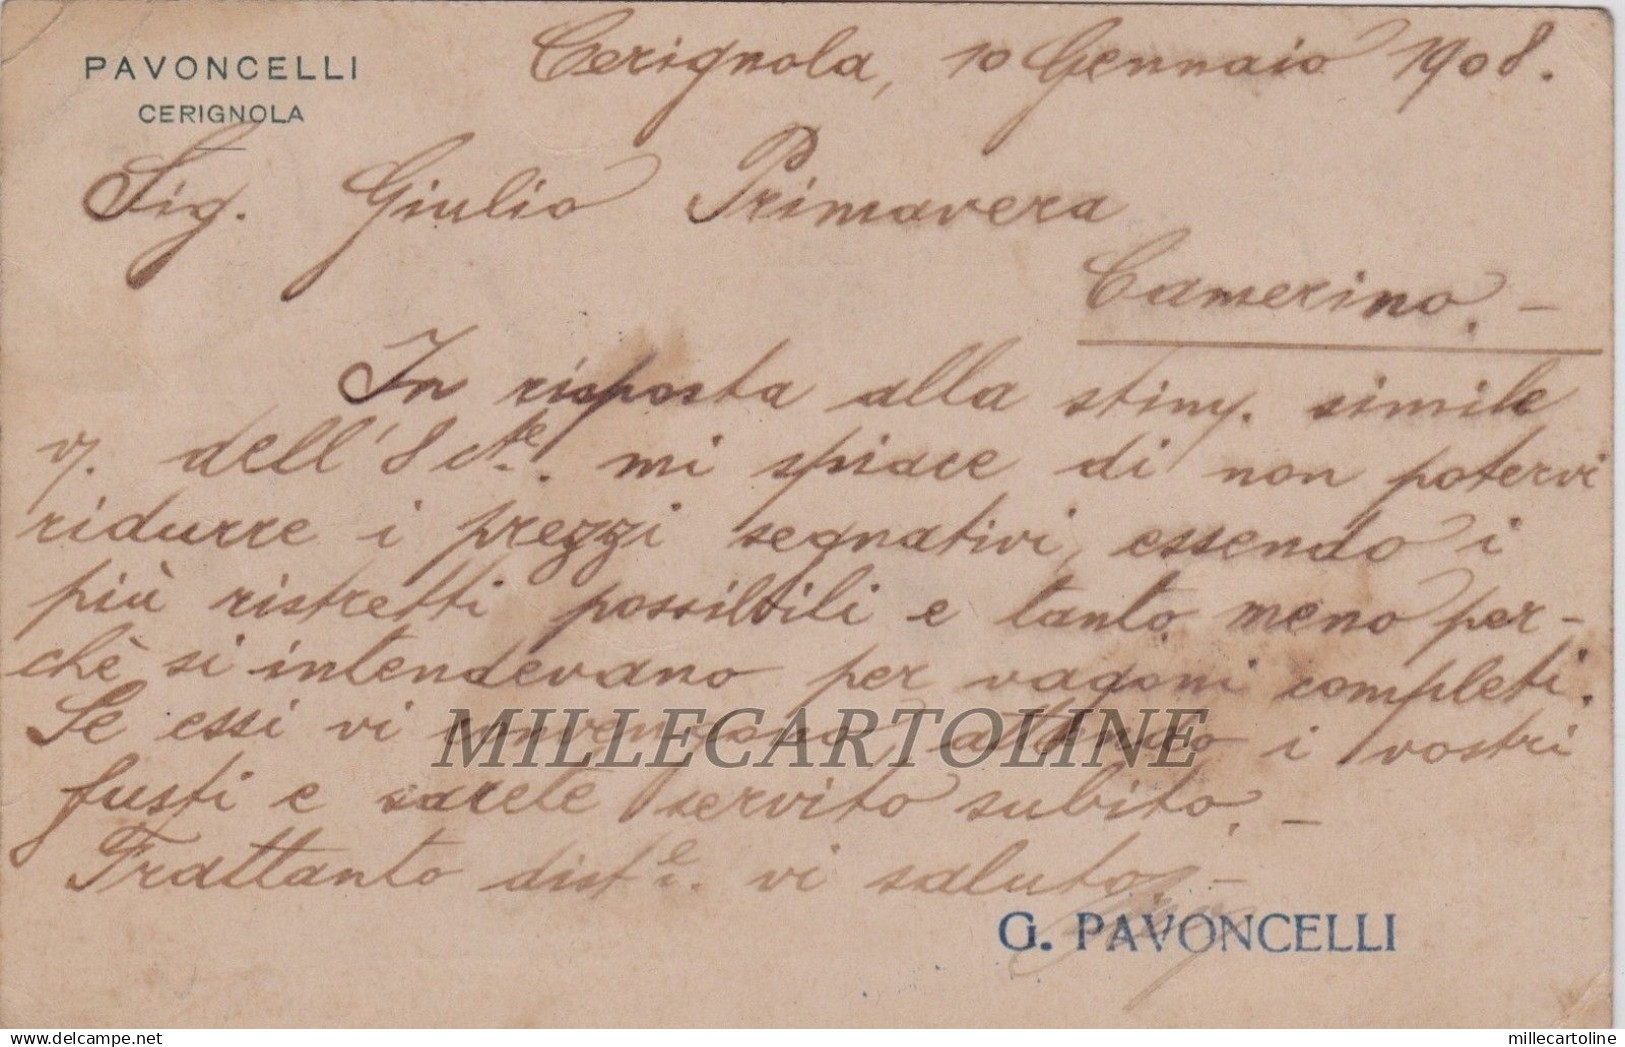 PAVONCELLI
CERIGNOLA
Cerignola, 10 Gennaio 1908.
Sig. Giulio Primavera
Camerino. –
In risposta alla stim. simile
v. dell'8 cte. mi spiace di non potervi
ridurre i prezzi segnativi, essendo i
più ristretti possibili e tanto meno per-
chè si intendevano per vagoni completi.
Se essi vi convengono, attendo i vostri
fusti e sarete servito subito. –
Frattanto diste. vi saluto. –
G. PAVONCELLI
MILLECARTOLINE
delcampe.net
millecartoline